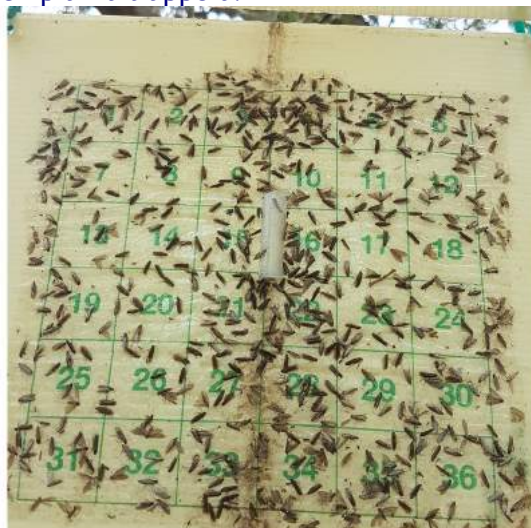 1 2 3 5 6
7 8 9 10 11 12
13 14 15 16 17 18
19 20 21 22 23 24
25 26 27 28 29 30
31 32 33 34 35 36